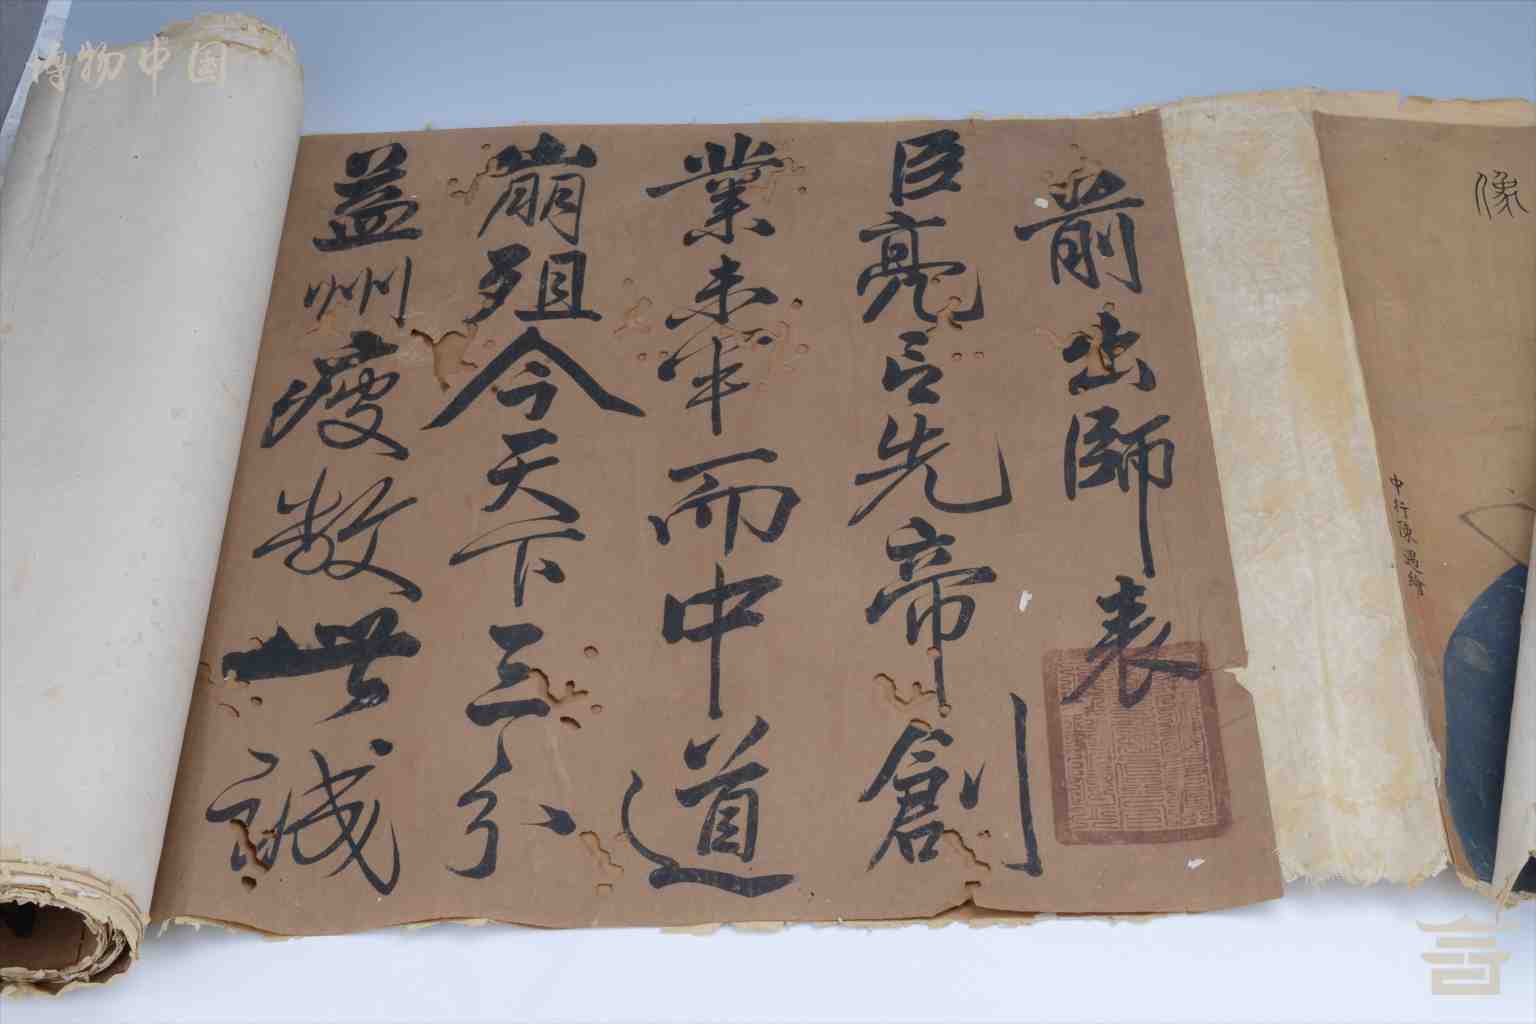 博物中国
像
中行陳遇繪
前出師表
臣亮言先帝創
業未半而中道
崩殂今天下三分
益州疲敝此誠